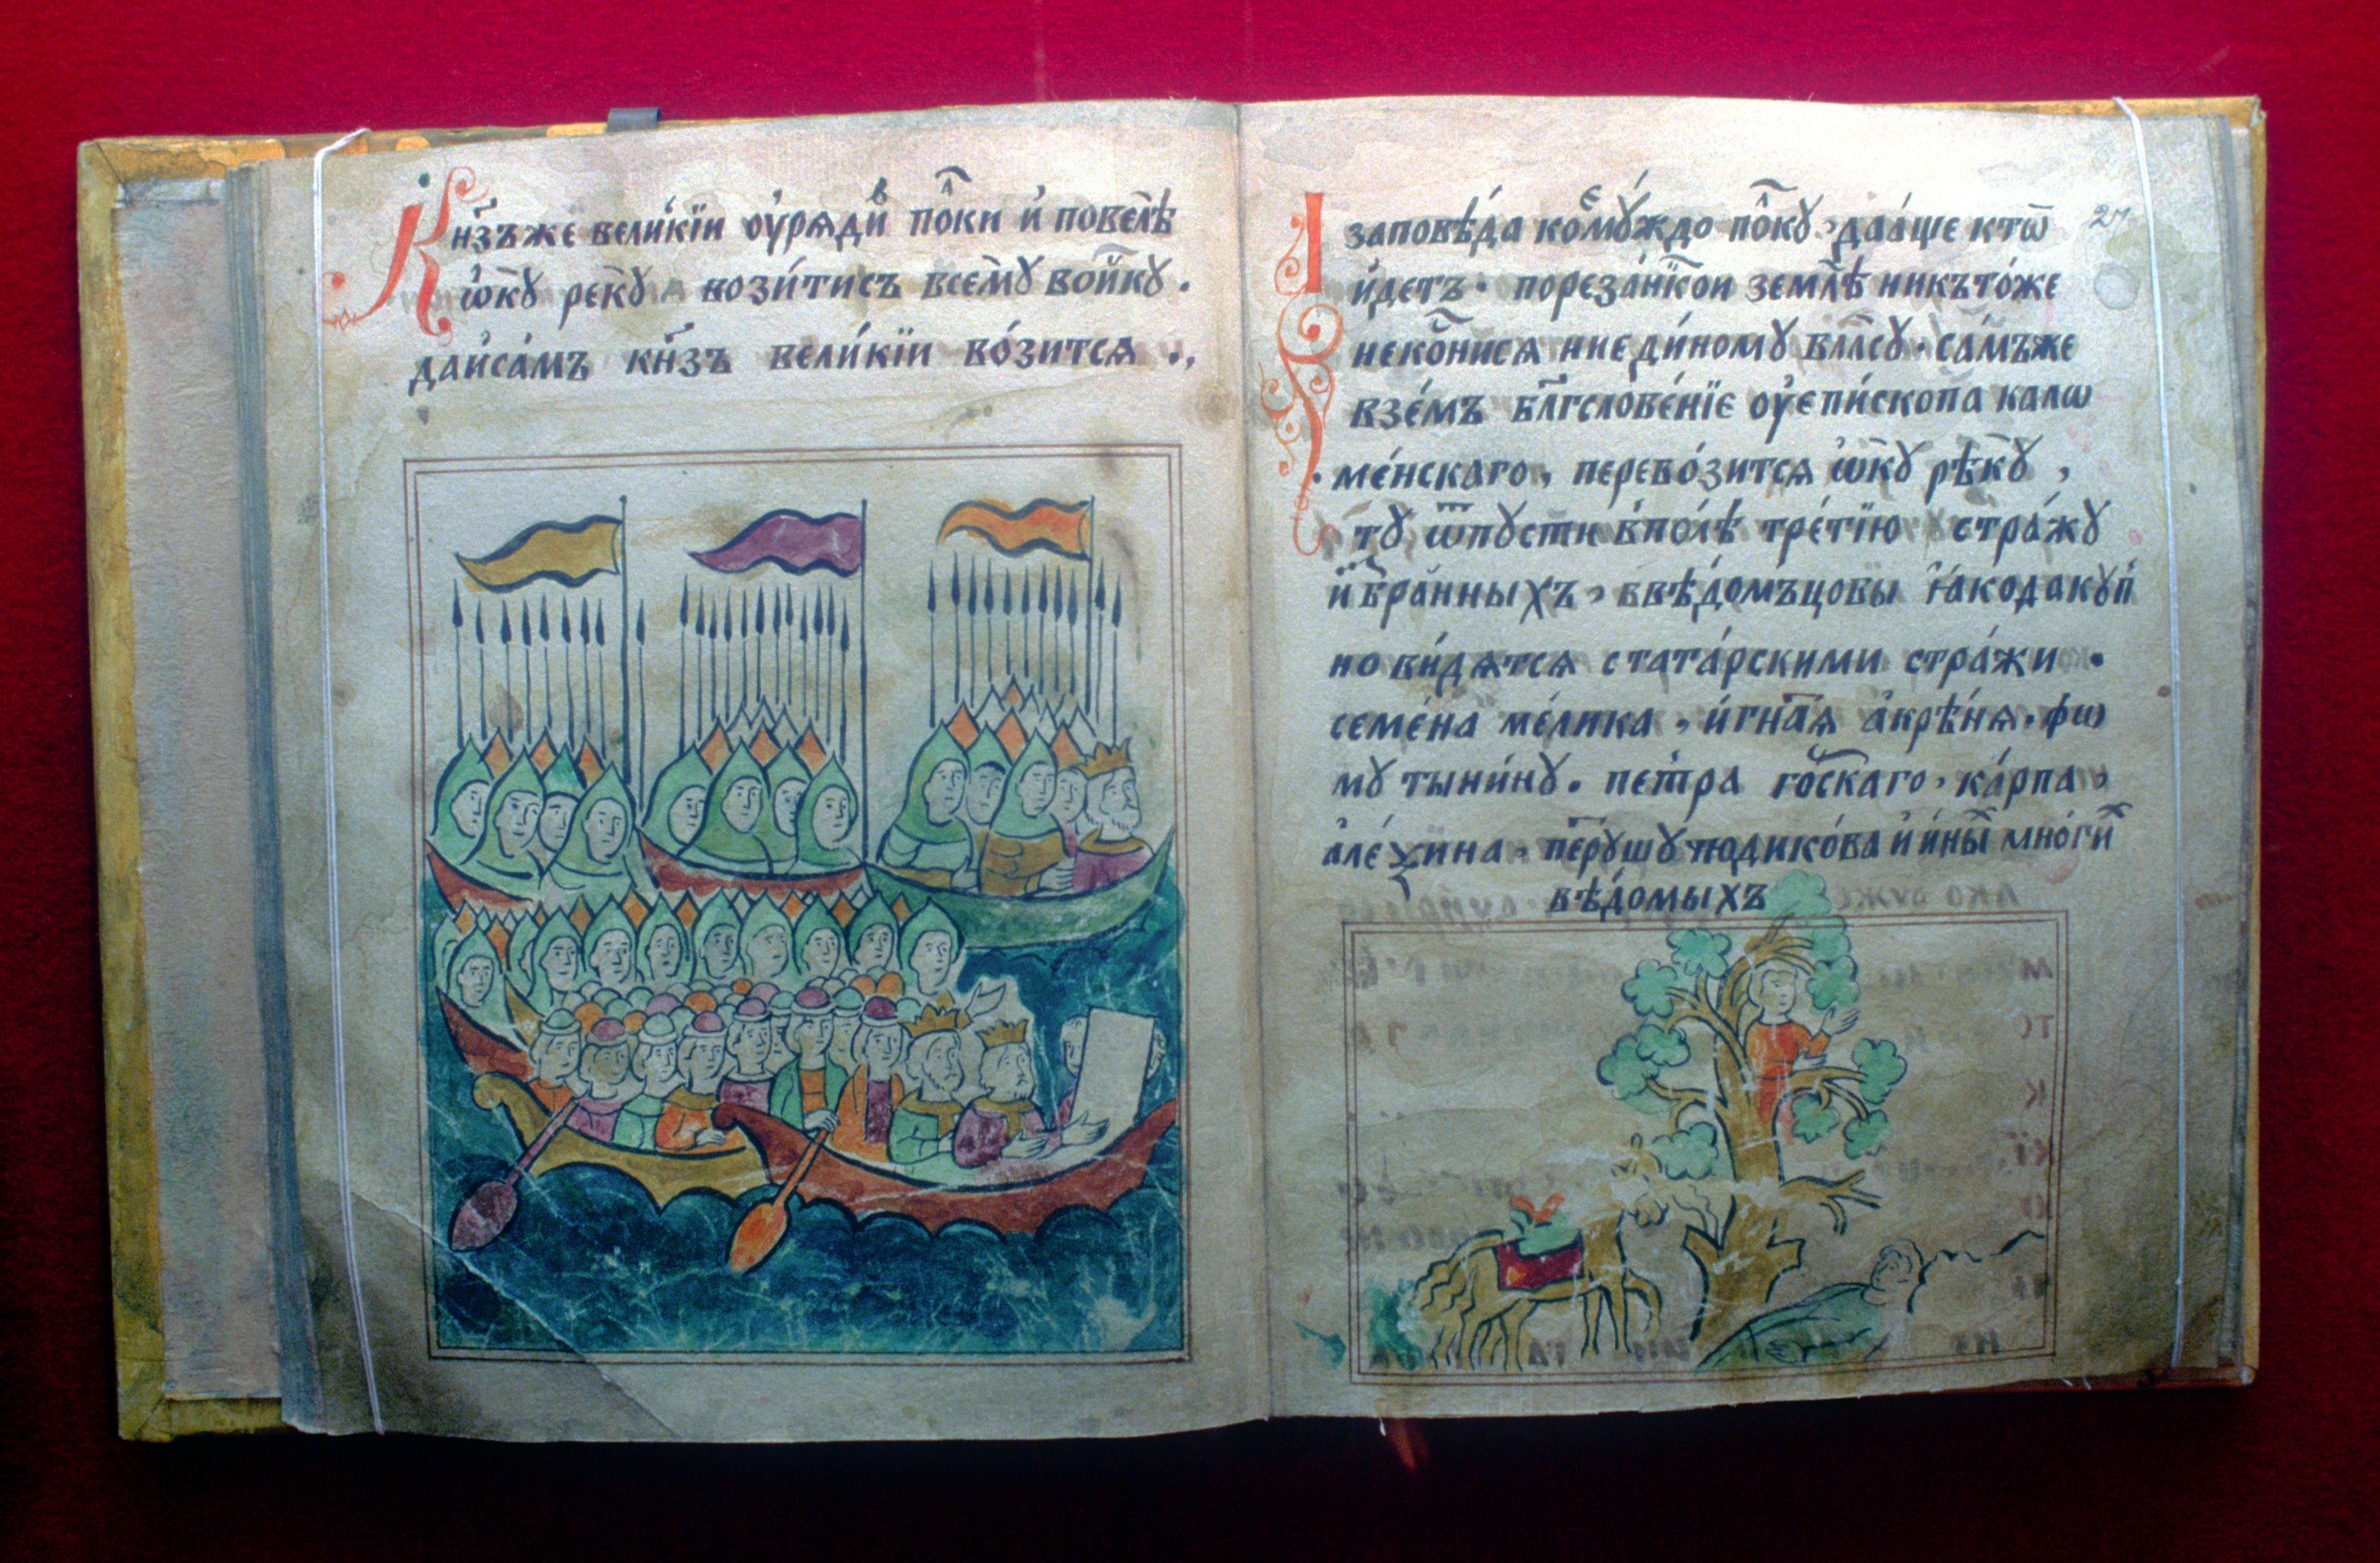 Кн҃зьже вели́кїи ѹ҆ряди пѡ́ки и҆ повелѣ
ѡ҆кꙋ рекꙋ возитисъ всемꙋ воискꙋ .
даи҆са́мъ кн҃зъ вели́кїи во́зится .,
І заповѣ́да комꙋ́ждо по́кꙋ , даа́ще кто̑
и҆детъ · порезанкои землѣ никъто́же
некоснися ниеди́номꙋ власꙋ · са́мъже
взе́мъ блгⷭ҇лове́нїе ѹ҆епи́скопа калѡ
· ме́нскаго , перево́зится ѡ҆кꙋ рѣкꙋ ,
тꙋ ѿпꙋсти вполѣ тре́тїю стра́жꙋ
и҆збра́нныхъ , ввѣ́домъцовы ꙗ҆кодакꙋп
но ви́дятся стата́рскими стра́жи .
семе́на ме́лика , и҆гна́тя а҆крѣ́ня . фѡ
мꙋ тыни́нꙋ . петра го́рскаго , ка́рпа ,
а҆ле́ѯина . перꙋшꙋ подико́ва и҆ и҆ны́х мно́гих
вѣ́домыхъ
27